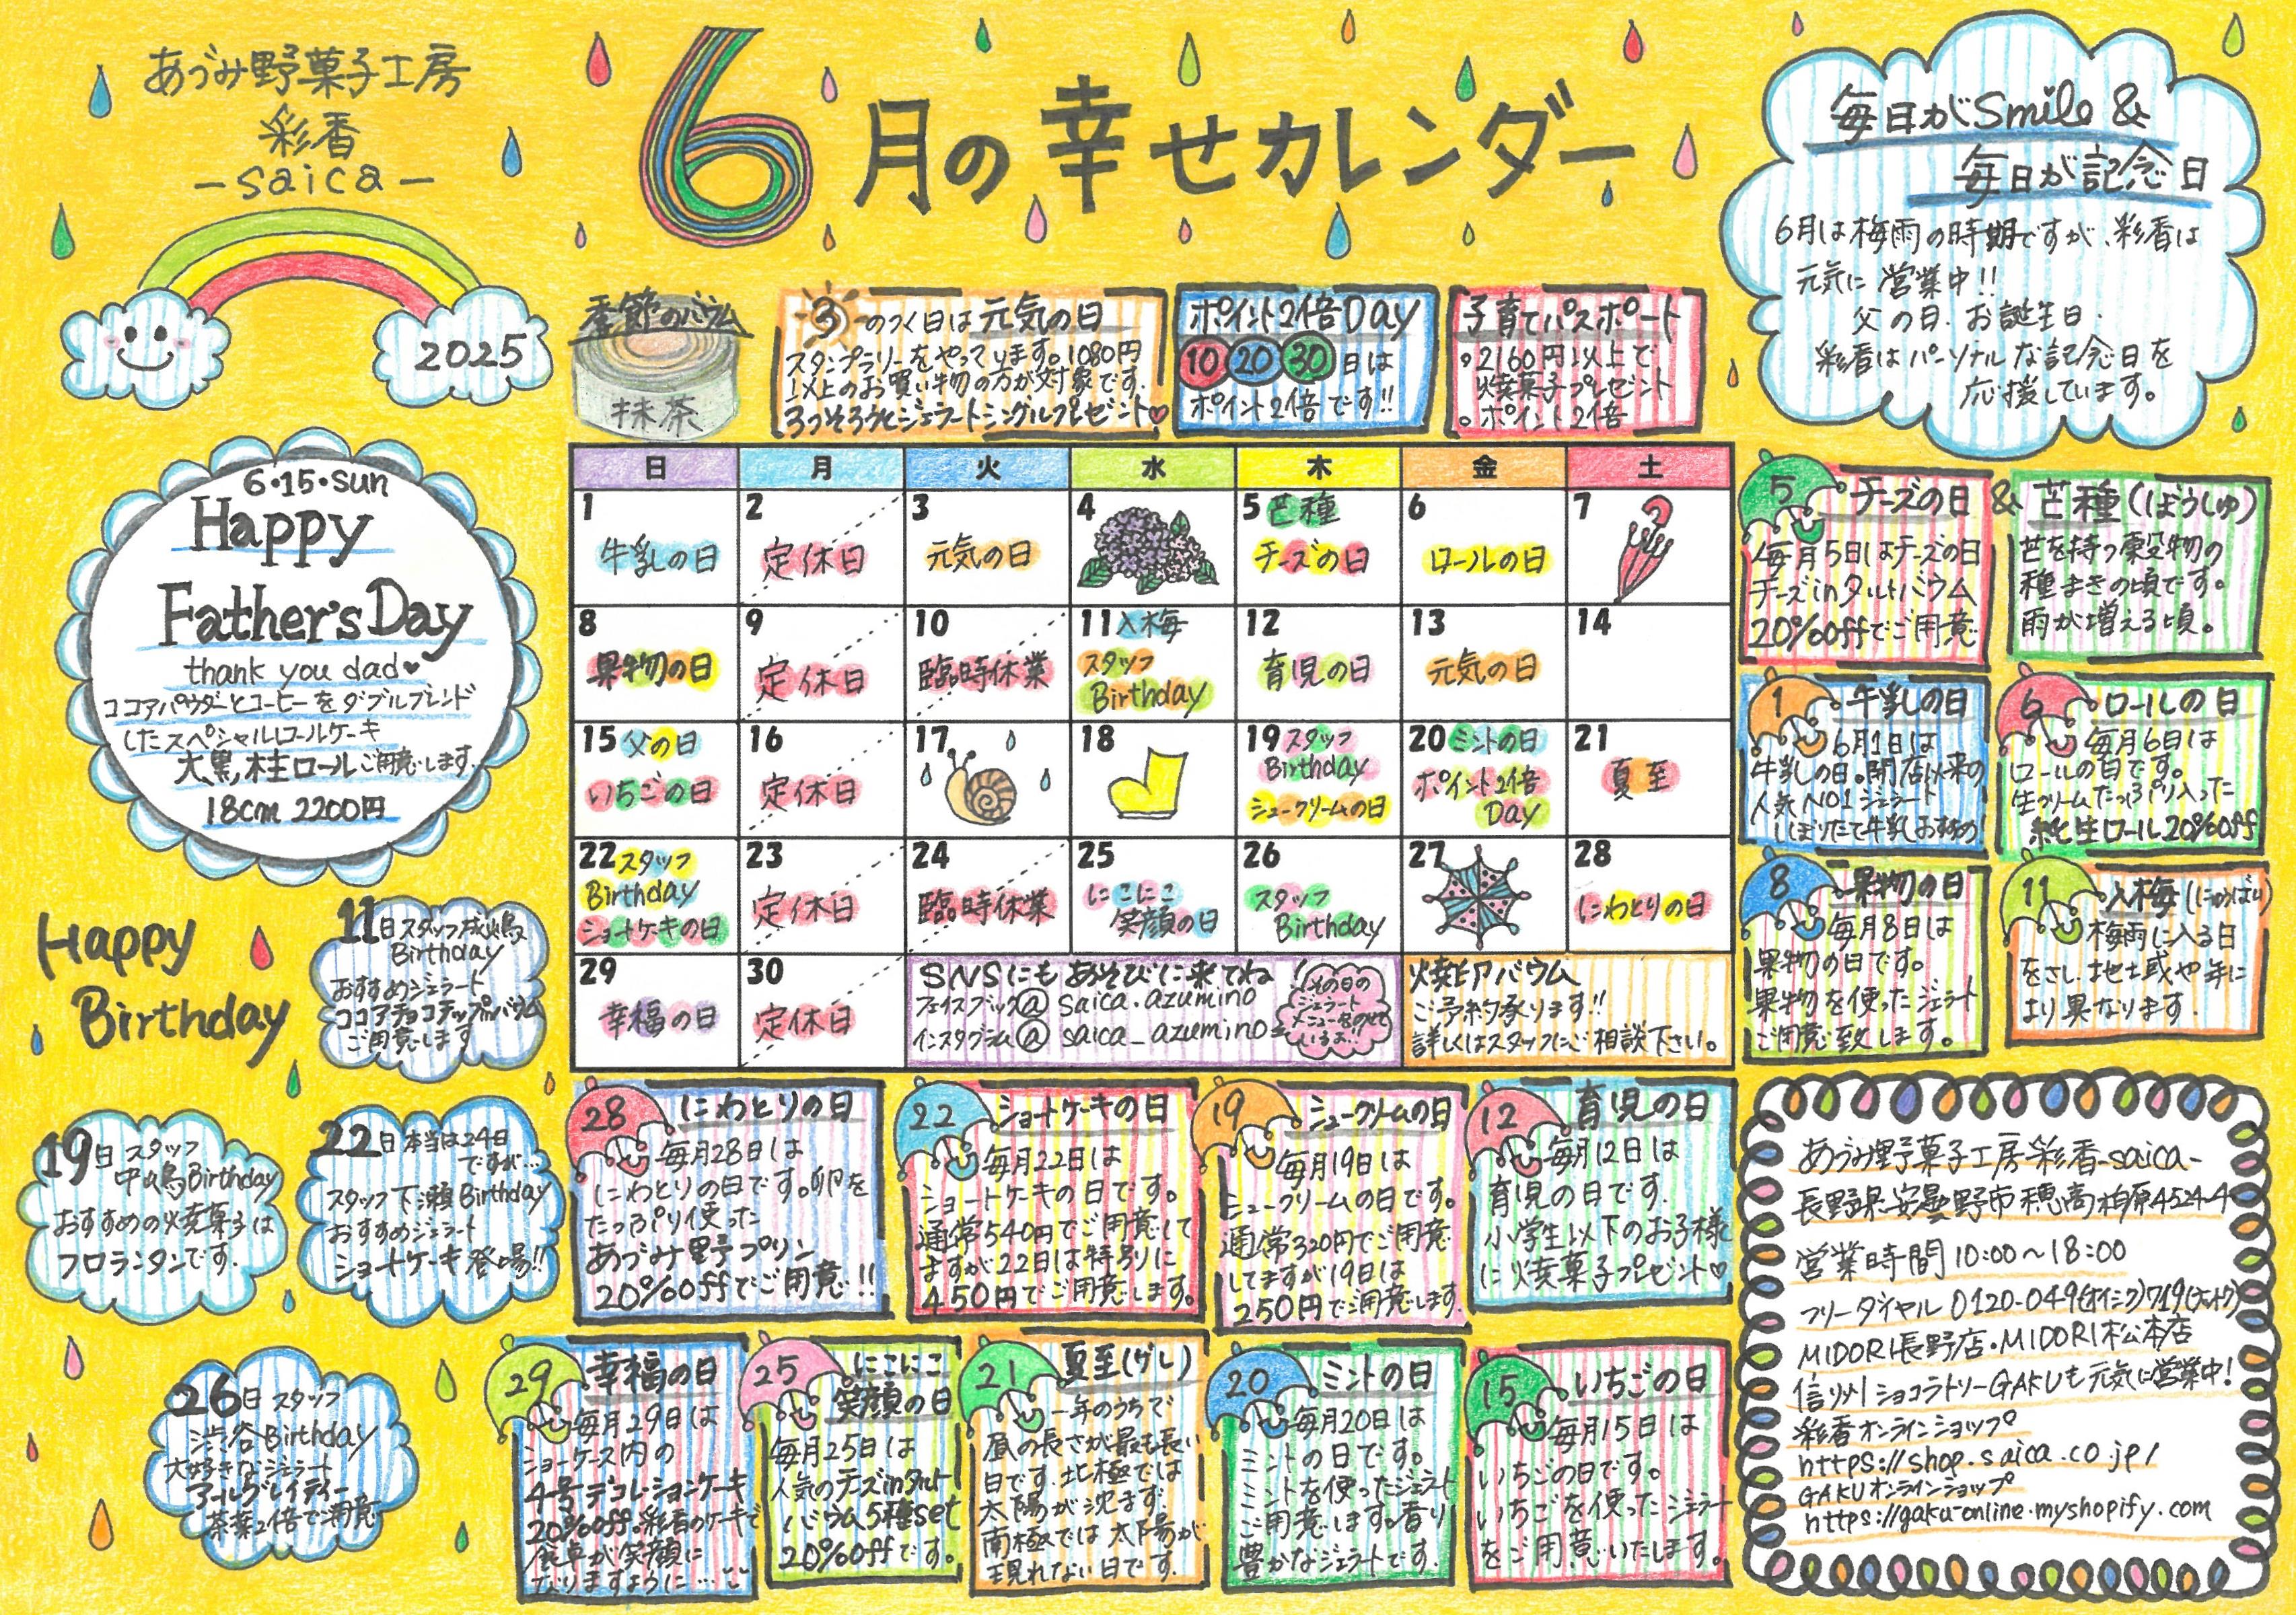 あづみ野菓子工房
彩香
-saica-
2025
6月の幸せカレンダー
毎日がSmile &
毎日が記念日
6月は梅雨の時期ですが、彩香は
元気に営業中!!
父の日、お誕生日、
彩香はパーソナルな記念日を
応援しています。
季節のバウム
抹茶
3のつく日は元気の日
スタンプラリーをやっています。1080円
以上のお買い物の方が対象です。
3つそろうとジェラートシングルプレゼント♥
ポイント2倍Day
10 20 30日は
ポイント2倍です!!
子育てパスポート
・2160円以上で
焼菓子プレゼント
・ポイント2倍
6・15・sun
Happy
Father's Day
thank you dad♥
ココアパウダーとコーヒーをダブルブレンド
したスペシャルロールケーキ
大黒柱ロールご用意します。
18cm 2200円
日 月 火 水 木 金 土
1 牛乳の日
2 定休日
3 元気の日
4
5 芒種
チーズの日
6 ロールの日
7
8 果物の日
9 定休日
10 臨時休業
11 入梅
スタッフ
Birthday
12 育児の日
13 元気の日
14
15 父の日
いちごの日
16 定休日
17
18
19 スタッフ
Birthday
シュークリームの日
20 ミントの日
ポイント2倍
Day
21 夏至
22 スタッフ
Birthday
ショートケーキの日
23 定休日
24 臨時休業
25 にこにこ
笑顔の日
26 スタッフ
Birthday
27
28 にわとりの日
29 幸福の日
30 定休日
SNSにもあそびに来てね!
フェイスブック@ saica.azumino
インスタグラム@ saica_azumino
その日の
ジェラート
メニューものせて
いるよ!!
焼印バウム
ご予約承ります!!
詳しくはスタッフにご相談下さい。
5 チーズの日 &
毎月5日はチーズの日
チーズinタルトバウム
20%offでご用意
芒種(ぼうしゅ)
芒を持つ穀物の
種まきの頃です。
雨が増える頃。
1 牛乳の日
6月1日は
牛乳の日。開店以来の
人気NO1ジェラート
しぼりたて牛乳おすすめ
6 ロールの日
毎月6日は
ロールの日です。
生クリームたっぷり入った
純生ロール20%off
8 果物の日
毎月8日は
果物の日です。
果物を使ったジェラート
ご用意致します。
11 入梅(にゅうばい)
梅雨に入る日
をさし、地域や年に
より異なります。
Happy
Birthday
11日スタッフ成嶋
Birthday
おすすめジェラート
ココアチョコチップinバウム
ご用意します
19日スタッフ
中嶋Birthday
おすすめの焼菓子は
フロランタンです。
22日本当は24日
ですが…
スタッフ下瀬Birthday
おすすめジェラート
ショートケーキ登場!!
26日スタッフ
渋谷Birthday
大好きなジェラート
アールグレイティー
茶葉2倍でご用意
28 にわとりの日
毎月28日は
にわとりの日です。卵を
たっぷり使った
あづみ野プリン
20%offでご用意!!
22 ショートケーキの日
毎月22日は
ショートケーキの日です。
通常540円でご用意して
ますが22日は特別に
450円でご用意します。
19 シュークリームの日
毎月19日は
シュークリームの日です。
通常320円でご用意
してますが19日は
250円でご用意します。
12 育児の日
毎月12日は
育児の日です。
小学生以下のお子様
に焼菓子プレゼント♡
29 幸福の日
毎月29日は
ショーケース内の
4号デコレーションケーキ
20%off。彩香のケーキで
食卓が笑顔に
なりますように…
25 にこにこ
笑顔の日
毎月25日は
人気のチーズinタルト
バウム5種set
20%offです。
21 夏至(げし)
一年のうちで
昼の長さが最も長い
日です。北極では
太陽が沈まず、
南極では太陽が
現れない日です。
20 ミントの日
毎月20日は
ミントの日です。
ミントを使ったジェラート
ご用意します。香り
豊かなジェラートです。
15 いちごの日
毎月15日は
いちごの日です。
いちごを使ったジェラート
をご用意いたします。
あづみ野菓子工房彩香-saica-
長野県安曇野市穂高柏原4524-4
営業時間10:00~18:00
フリーダイヤル0120-049(オイシク)719(ナイク)
MIDORI長野店・MIDORI松本店
信州ショコラトリーGAKUも元気に営業中!
彩香オンラインショップ
https://shop.saica.co.jp/
GAKUオンラインショップ
https://gaku-online.myshopify.com